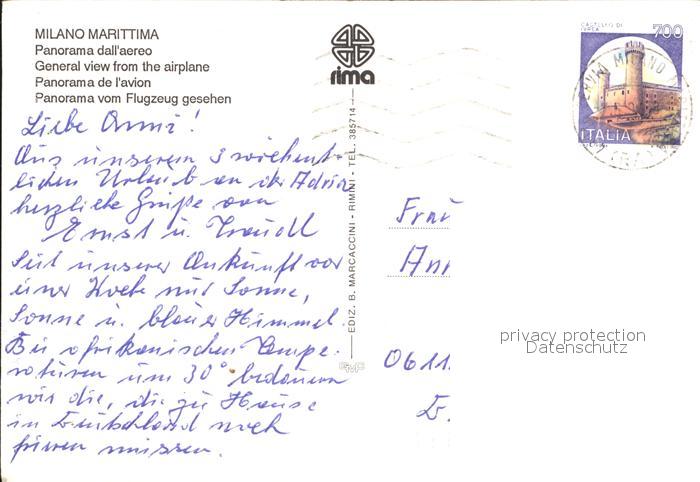 MILANO MARITTIMA
Panorama dall'aereo
General view from the airplane
Panorama de l'avion
Panorama vom Flugzeug gesehen
rima
CASTELLO DI
IVREA
700
ITALIA
MILANO
Liebe Anni!
Aus unserem 3 wöchent-
lichen Urlaub an der Adria
herzliche Grüße von
Ernst u. Traudl
Seit unserer Ankunft vor
einer Woche nur Sonne,
Sonne u. blauer Himmel.
Bei afrikanischen Tempe-
raturen um 30° bedauern
wir die, die zu Hause
in Deutschland noch
frieren müssen.
EDIZ. B. MARCACCINI - RIMINI - TEL. 385714
Frau
An
0611
privacy protection
Datenschutz